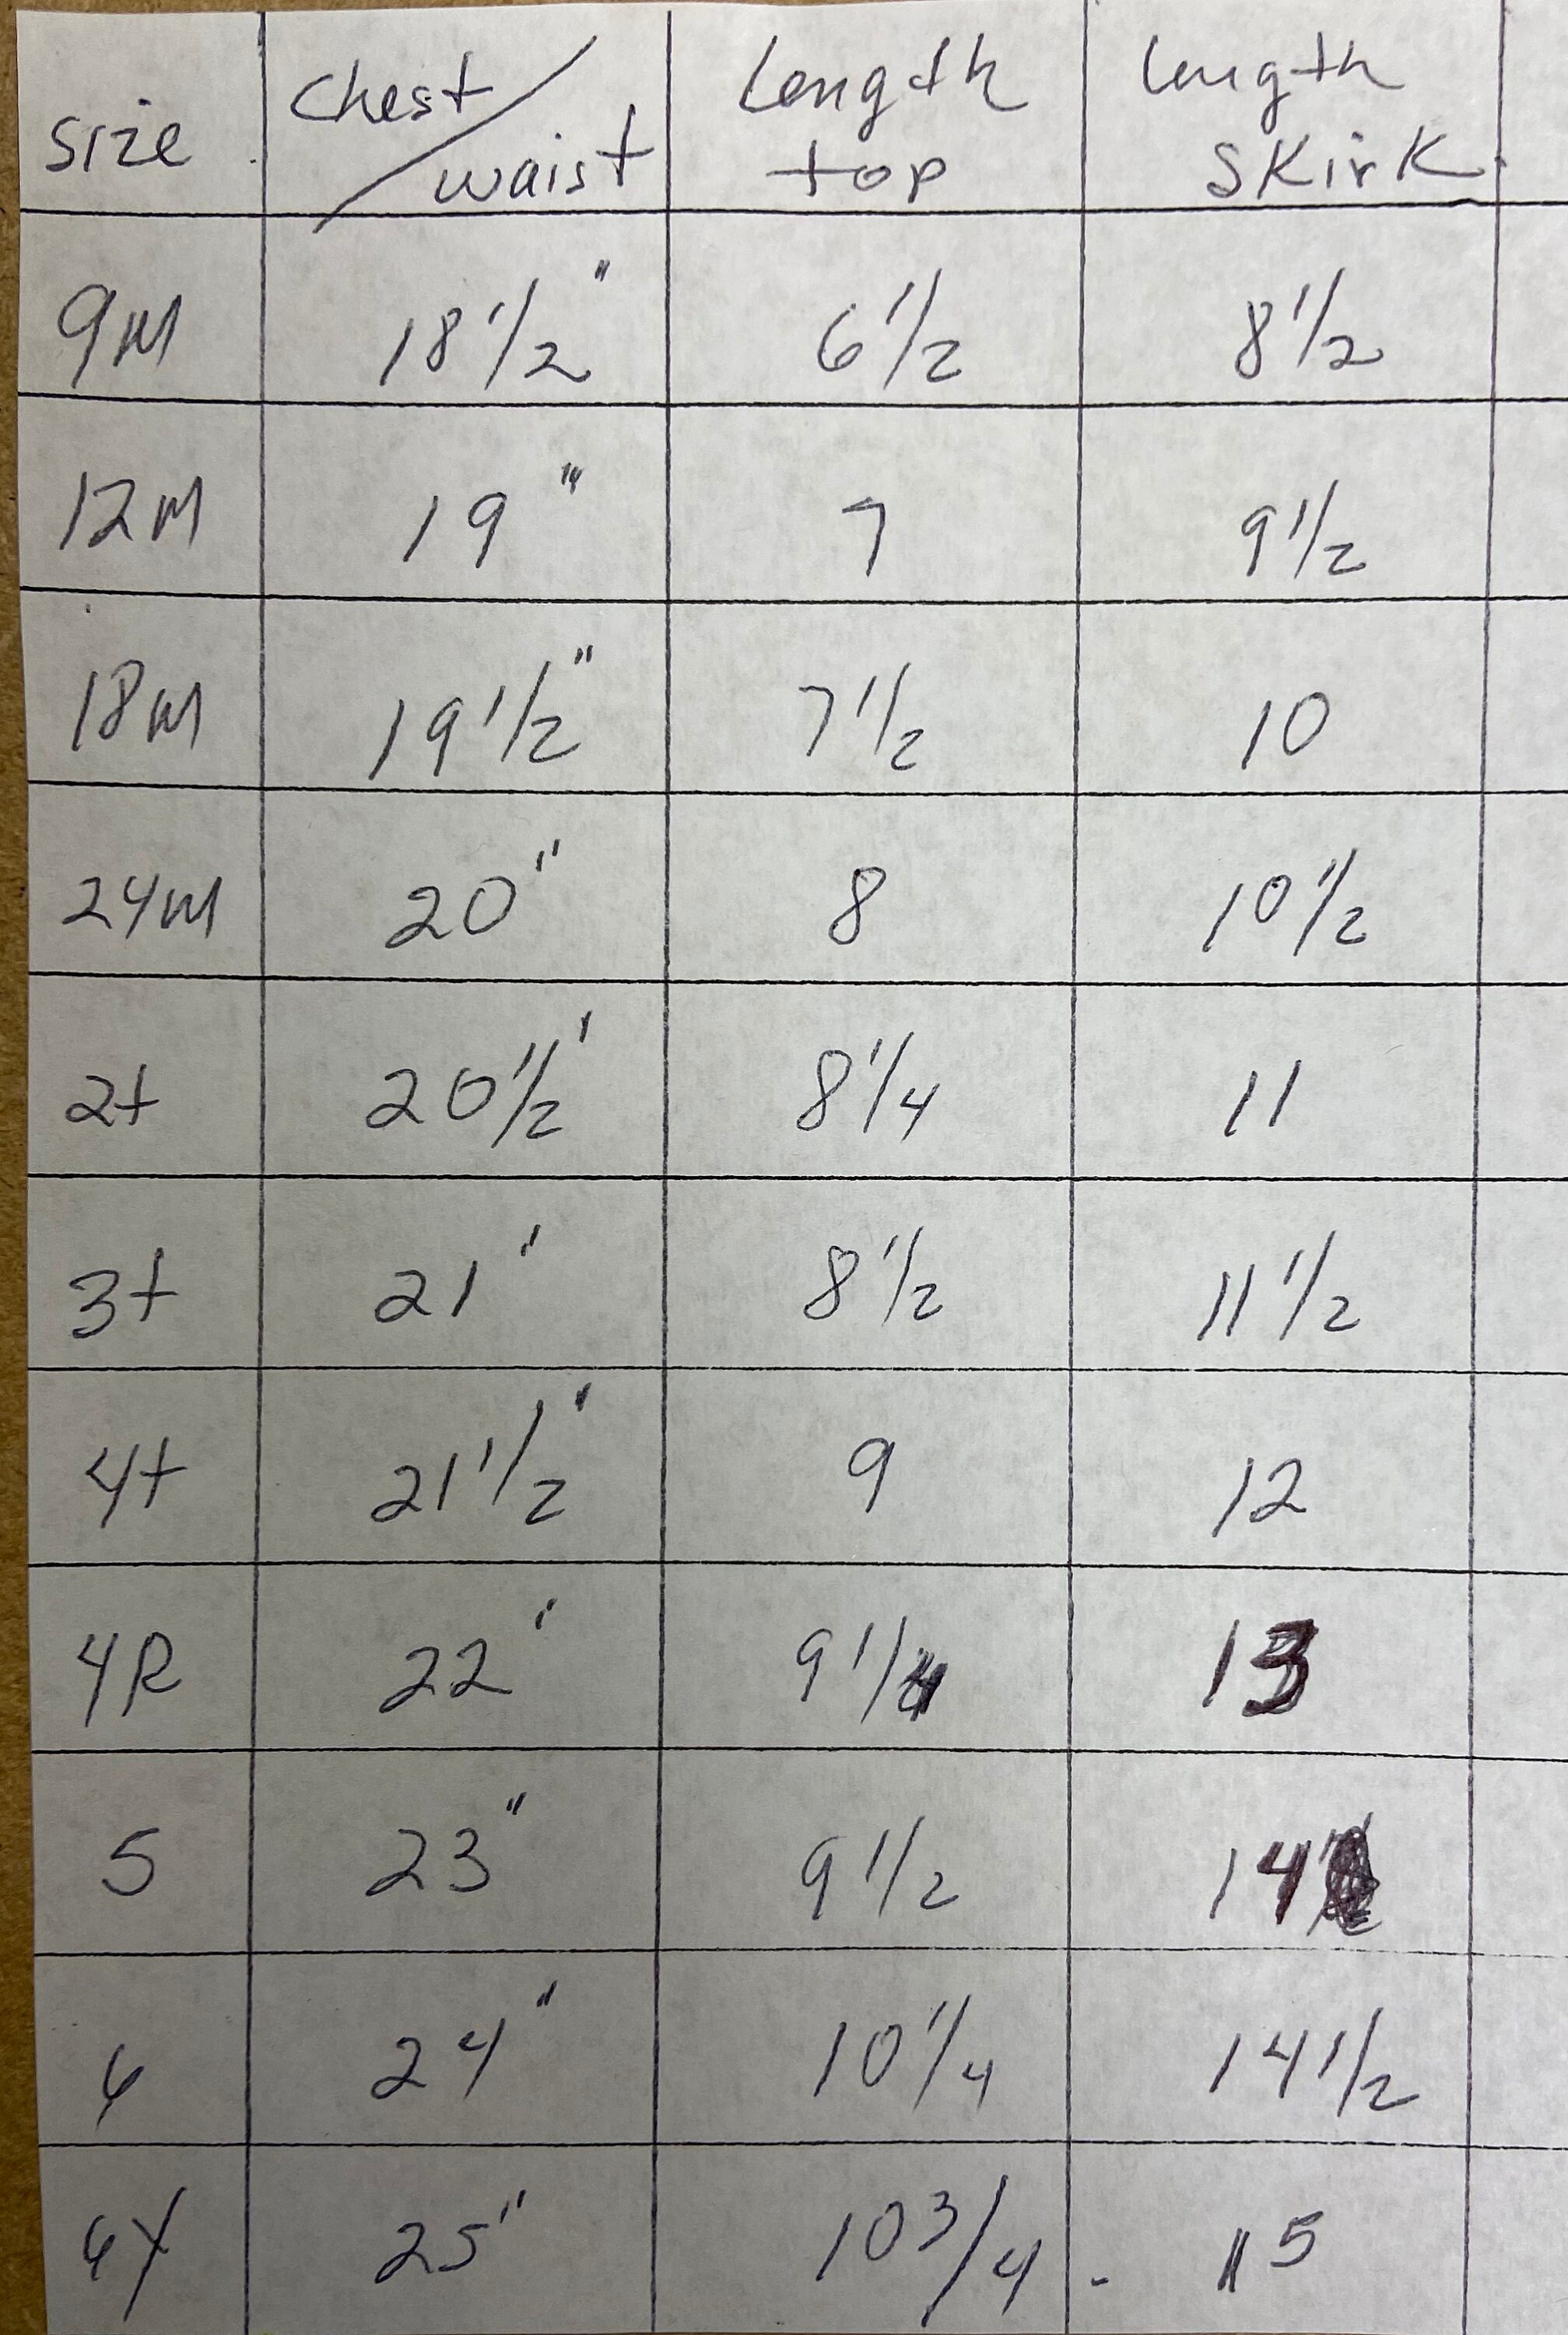 size chest/waist Length top length skirk
9M 18 1/2" 6 1/2 8 1/2
12M 19" 7 9 1/2
18M 19 1/2" 7 1/2 10
24M 20" 8 10 1/2
2t 20 1/2" 8 1/4 11
3t 21" 8 1/2 11 1/2
4t 21 1/2" 9 12
4R 22" 9 1/4 13
5 23" 9 1/2 14
6 24" 10 1/4 14 1/2
6Y 25" 10 3/4 15